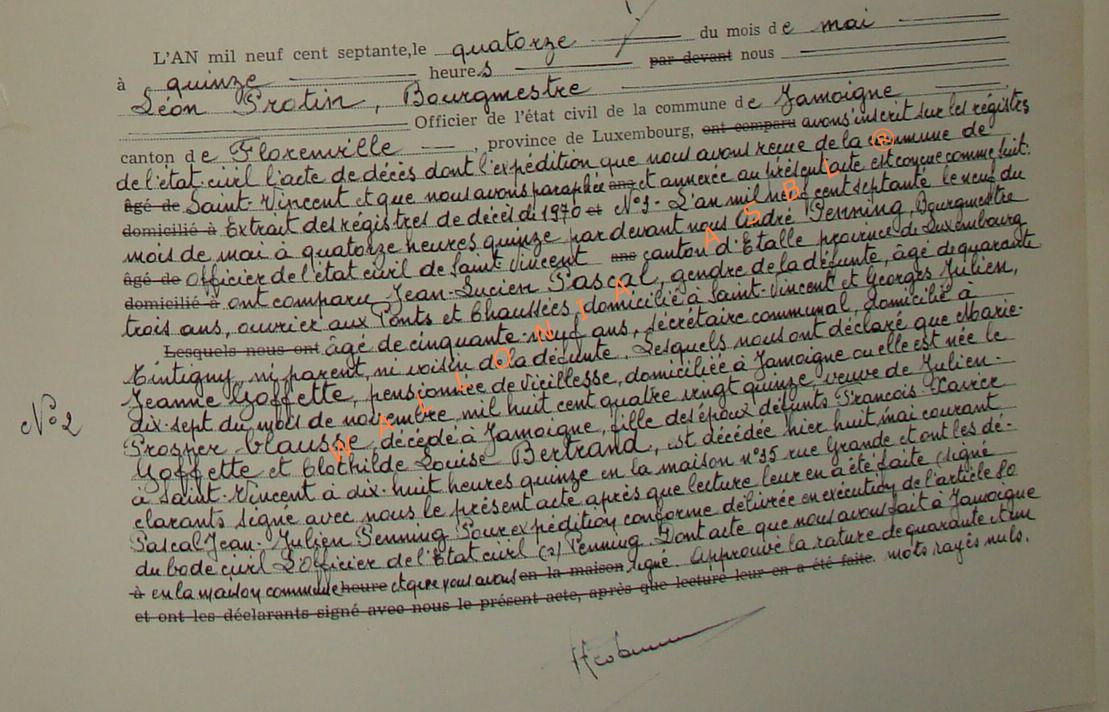 L'AN mil neuf cent septante, le quatorze du mois de mai
à quinze heures par devant nous
Léon Protin, Bourgmestre
Officier de l'état civil de la commune de Jamoigne
canton de Florenville, province de Luxembourg, ont comparu avons inscrit sur les régistres
de l'état-civil l'acte de décès dont l'expédition que nous avons reçue de la commune de
âgé de Saint-Vincent et que nous avons paraphée ans et annexée au présent acte est conçue comme suit:
domicilié à Extrait des régistres de décès di 1970 et N°9- L'an mil neuf cent septante le neuf du
mois de mai à quatorze heures quinze par devant nous André Penning, Bourgmestre
âgé de Officier de l'état civil de Saint-Vincent ans canton d'Etalle province de Luxembourg
domicilié à ont comparu Jean-Lucien Pascal, gendre de la défunte, âgé de quarante
trois ans, ouvrier aux Ponts et Chaussées, domicilié à Saint-Vincent et Georges Julien,
Lesquels nous ont âgé de cinquante-neuf ans, secrétaire communal, domicilié à
Tintigny, ni parent, ni voisin de la défunte. Lesquels nous ont déclaré que Marie-
Jeanne Goffette, pensionnée de vieillesse, domiciliée à Jamoigne ou elle est née le
dix-sept du mois de novembre mil huit cent quatre vingt quinze, veuve de Julien-
N°2
Prosper Clausse, décédé à Jamoigne, fille des époux défunts François-Xavier
Goffette et Clothilde Louise Bertrand, est décédée hier huit mai courant
à Saint-Vincent à dix-huit heures quinze en la maison n°35 rue Grande et ont les dé-
clarants signé avec nous le présent acte après que lecture leur en a été faite (signé
Pascal Jean. Julien Penning Pour expédition conforme délivrée en exécution de l'article 80
du code civil L'Officier de l'Etat civil (s) Penning. Dont acte que nous avons fait à Jamoigne
à en la maison commune heure et que nous avons en la maison signé. Approuvé la rature de quarante et un
et ont les déclarants signé avec nous le présent acte, après que lecture leur en a été faite. mots rayés nuls.
WALLONIA ASBL ®